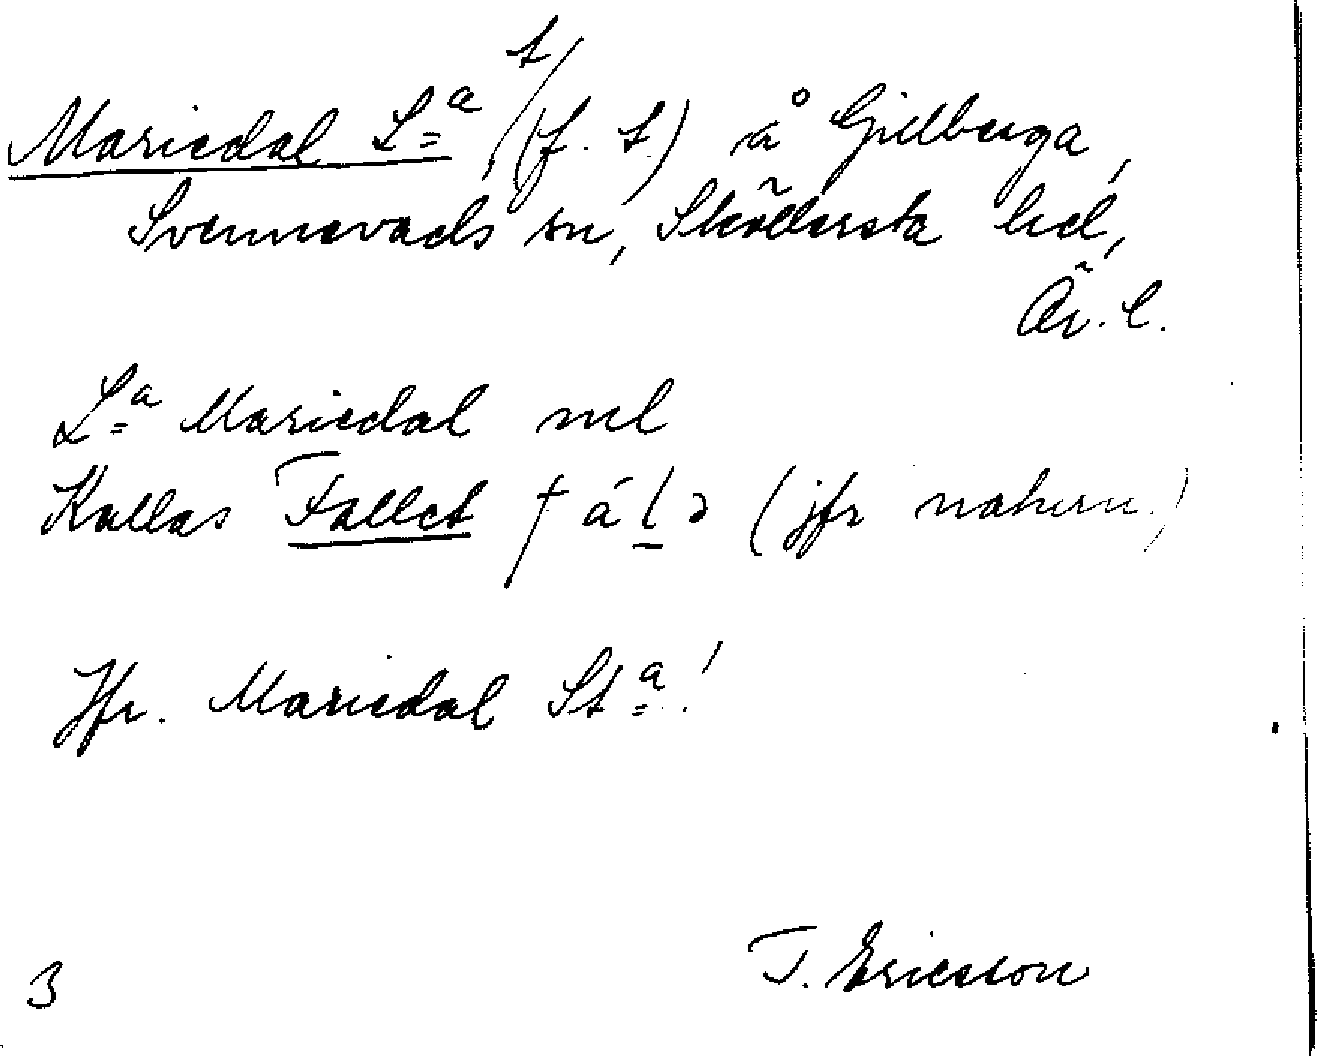 t
Mariedal L:a / (f. t) å Gillberga,
Svennevads sn, Sköllersta hd,
Ör. l.
L:a Mariedal ml
Kallas Fallet f á l ə (jfr nahern.)
Jfr. Mariedal St:a!
T. Ericsson
3